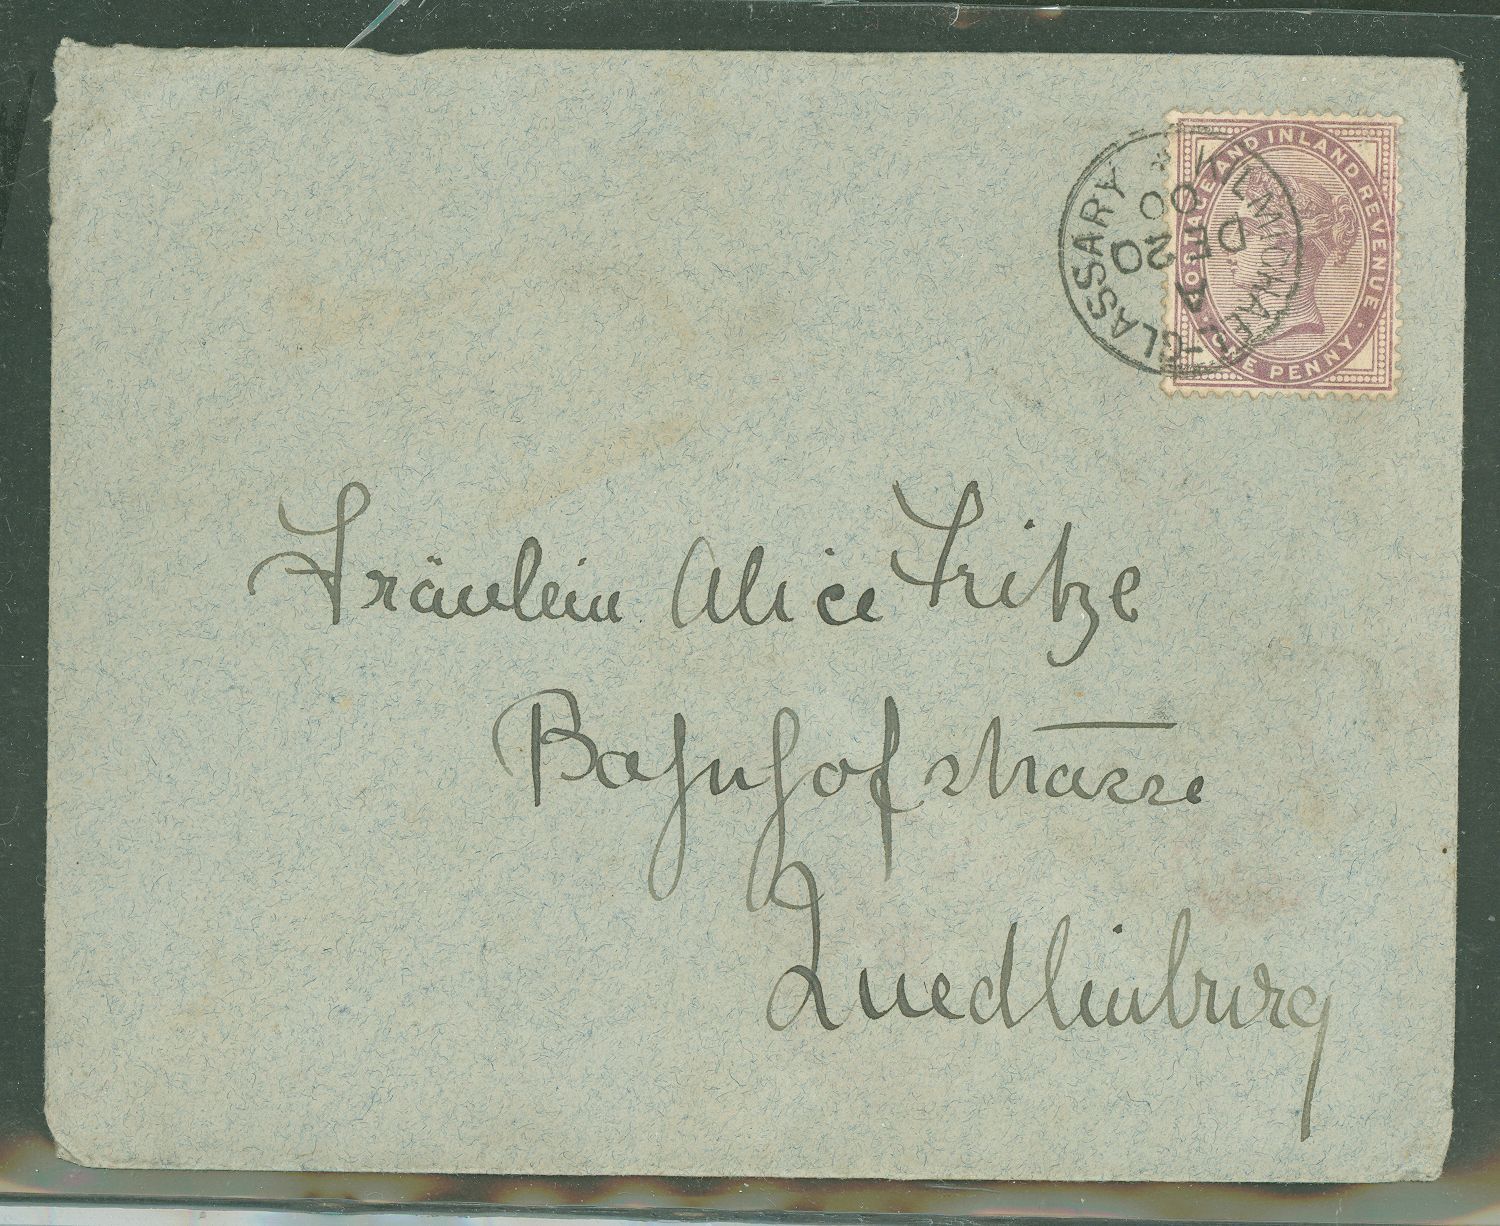 POSTAGE AND INLAND REVENUE
ONE PENNY
KILMICHAEL-GLASSARY
A
DE 20
00
Fräulein Alice Fritze
Bahnhofstrasse
Quedlinburg